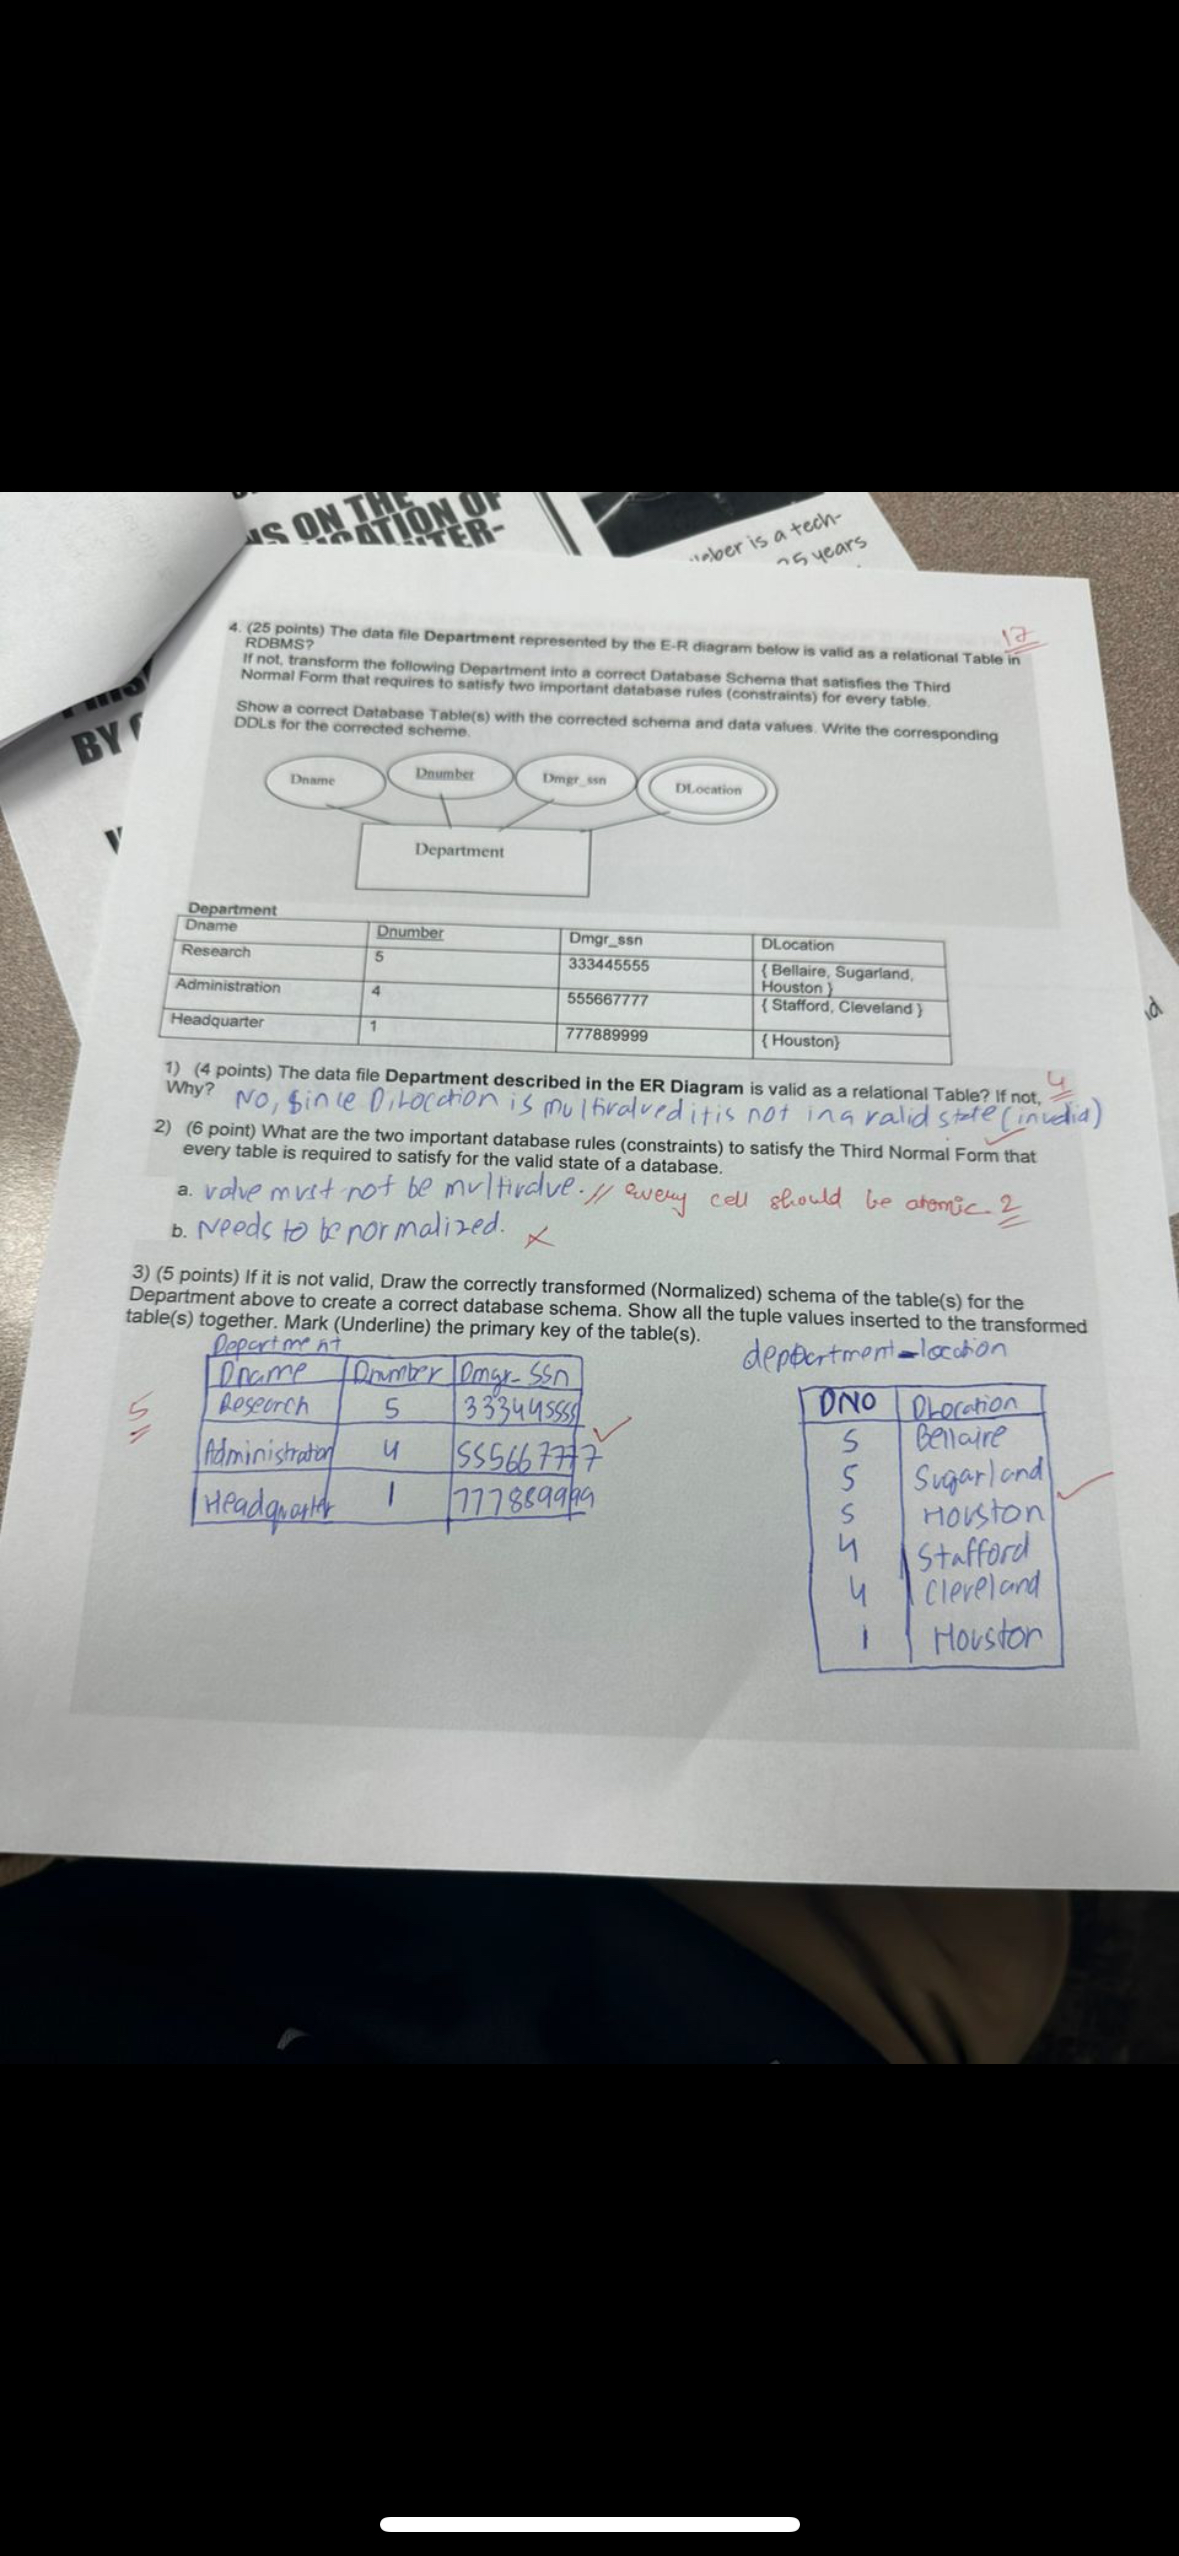 NS ON THE
CATION OF
is a tech-
25 years
BY
17
4. (25 points) The data file Department represented by the E-R diagram below is valid as a relational Table in
RDBMS?
If not, transform the following Department into a correct Database Schema that satisfies the Third
Normal Form that requires to satisfy two important database rules (constraints) for every table.
Show a correct Database Table(s) with the corrected schema and data values. Write the corresponding
DDLs for the corrected scheme.
Dname Dnumber Dmgr_ssn DLocation
Department
Department
Dname Dnumber Dmgr_ssn DLocation
Research 5 333445555 { Bellaire, Sugarland,
Houston }
Administration 4 555667777 { Stafford, Cleveland }
Headquarter 1 777889999 { Houston}
1) (4 points) The data file Department described in the ER Diagram is valid as a relational Table? If not, 4
Why? No, Since D.Location is multivalued it is not in a valid state (invalid)
2) (6 point) What are the two important database rules (constraints) to satisfy the Third Normal Form that
every table is required to satisfy for the valid state of a database.
a. value must not be multivalue. // every cell should be atomic. 2
b. Needs to be normalized.
3) (5 points) If it is not valid, Draw the correctly transformed (Normalized) schema of the table(s) for the
Department above to create a correct database schema. Show all the tuple values inserted to the transformed
table(s) together. Mark (Underline) the primary key of the table(s).
5
Department
Dname Dnumber Dmgr_Ssn
Research 5 333445555
Administration 4 555667777
Headquarter 1 777889999
department_location
DNO DLocation
5 Bellaire
5 Sugarland
5 Houston
4 Stafford
4 Cleveland
1 Houston